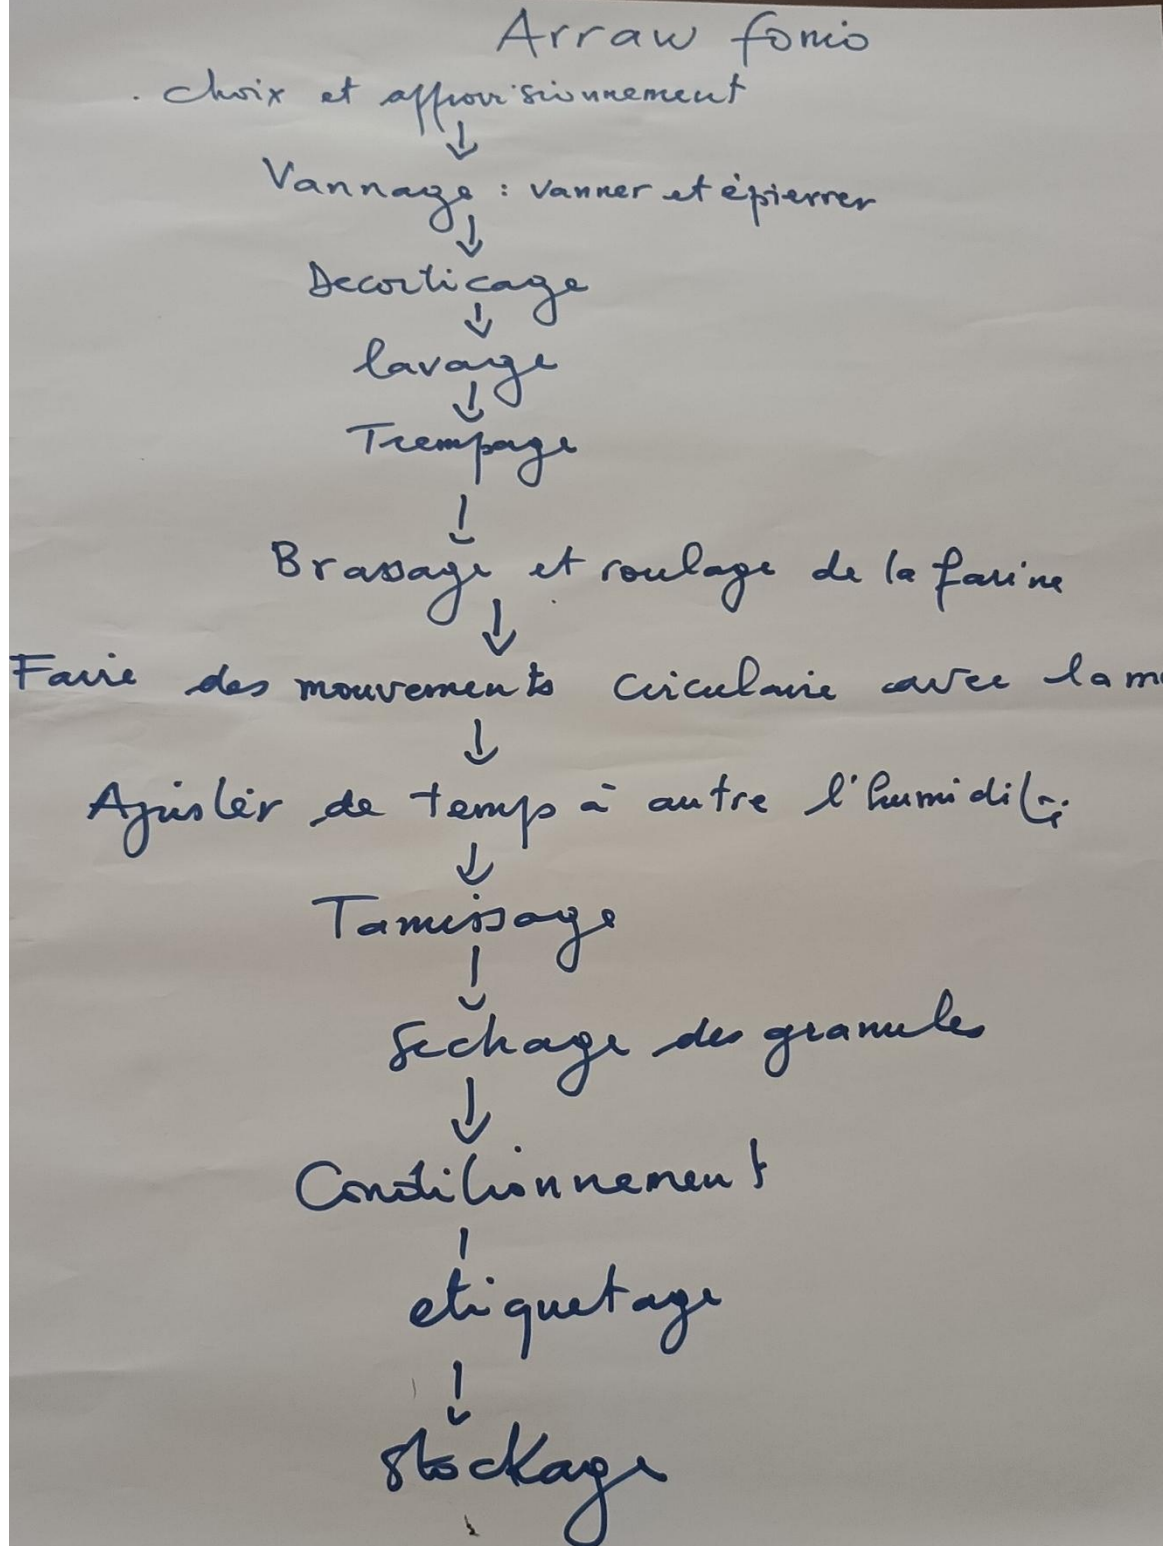 Arraw fonio
. choix et approvisionnement
↓
Vannage : vanner et épierrer
↓
Decorticage
↓
lavage
↓
Trempage
↓
Brassage et roulage de la farine
↓
Faire des mouvements circulaire avec la m
↓
Ajuster de temps à autre l'humidité
↓
Tamissage
↓
Sechage des granules
↓
Conditionnement
etiquetage
↓
stockage